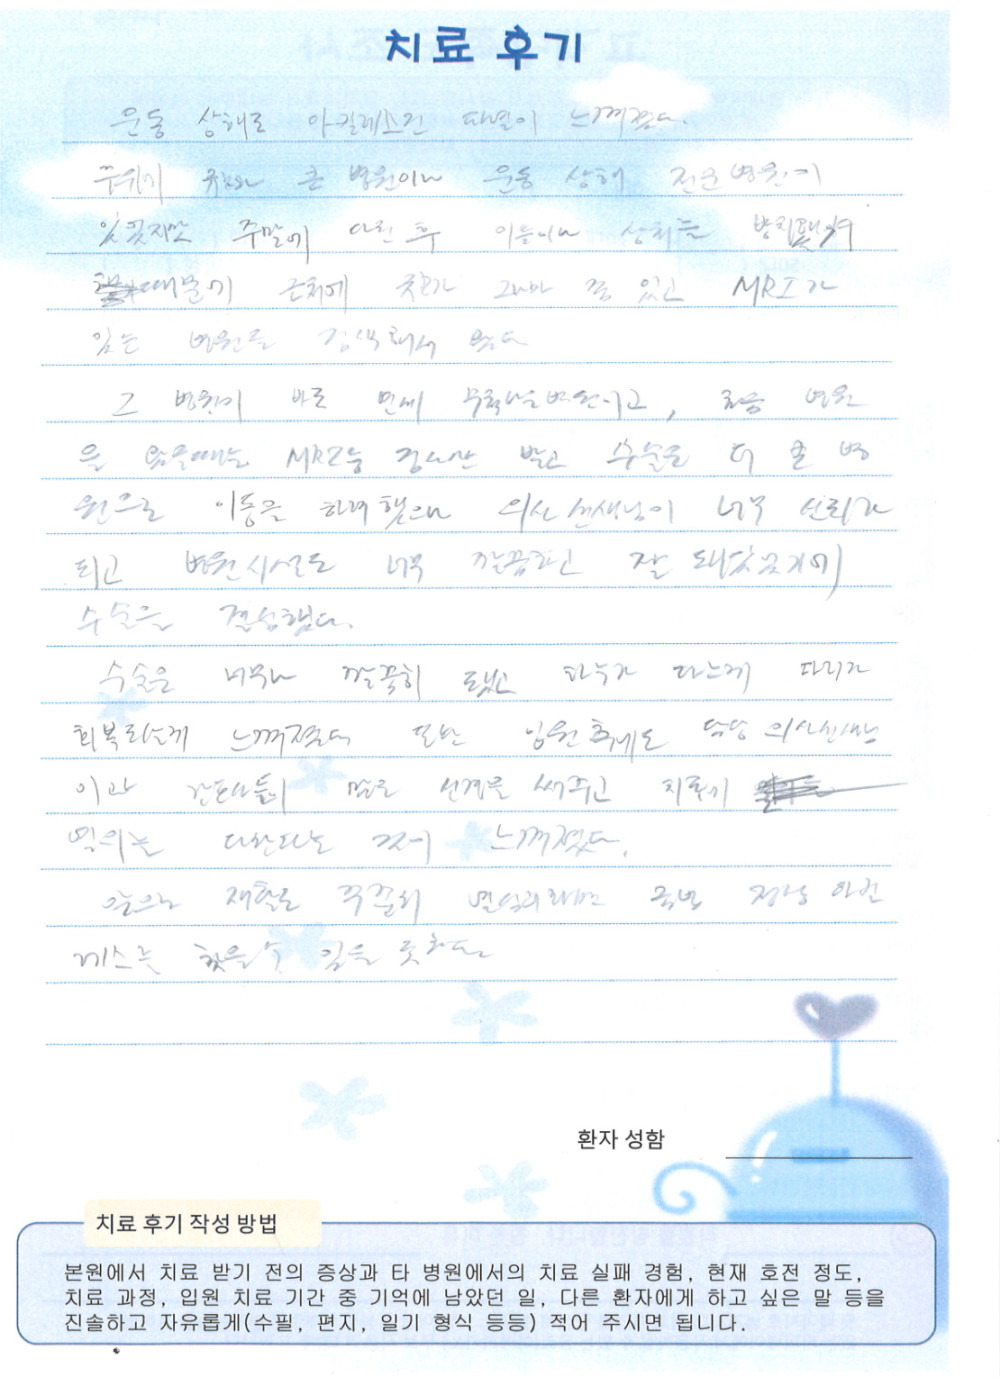 치료 후기
운동 상해로 아킬레스건 파열이 느껴졌다.
주위에 큰 병원이나 운동 상해 전문병원이
있었지만 주말에 다친 후 이틀이나 상처를
때문에 근처에 그나마 좀 있고 MRI가
있는 병원을 검색해서 왔다
그 병원이 바로 병원이고, 처음 병원
을 왔을때는 MRI등 검사만 받고 수술은 더 큰 병
원으로 이동을 하려 했으나 의사 선생님이 너무 신뢰가
되고 병원시설도 너무 깔끔하고 잘 돼있었기에
수술을 결심했다.
수술은 너무나 깔끔히 됐고 하루가 다르게 다리가
회복되는게 느껴졌다 또한 입원 담당 의사선생님
이과 간호사들이 신경을 써주고 치료에
열의를 다한다는 것이 느껴졌다.
앞으로 재활도 꾸준히 열심히하면 금방 정상 아킬
레스를 찾을 수 있을 듯하다.
환자 성함
치료 후기 작성 방법
본원에서 치료 받기 전의 증상과 타 병원에서의 치료 실패 경험, 현재 호전 정도,
치료 과정, 입원 치료 기간 중 기억에 남았던 일, 다른 환자에게 하고 싶은 말 등을
진솔하고 자유롭게(수필, 편지, 일기 형식 등등) 적어 주시면 됩니다.